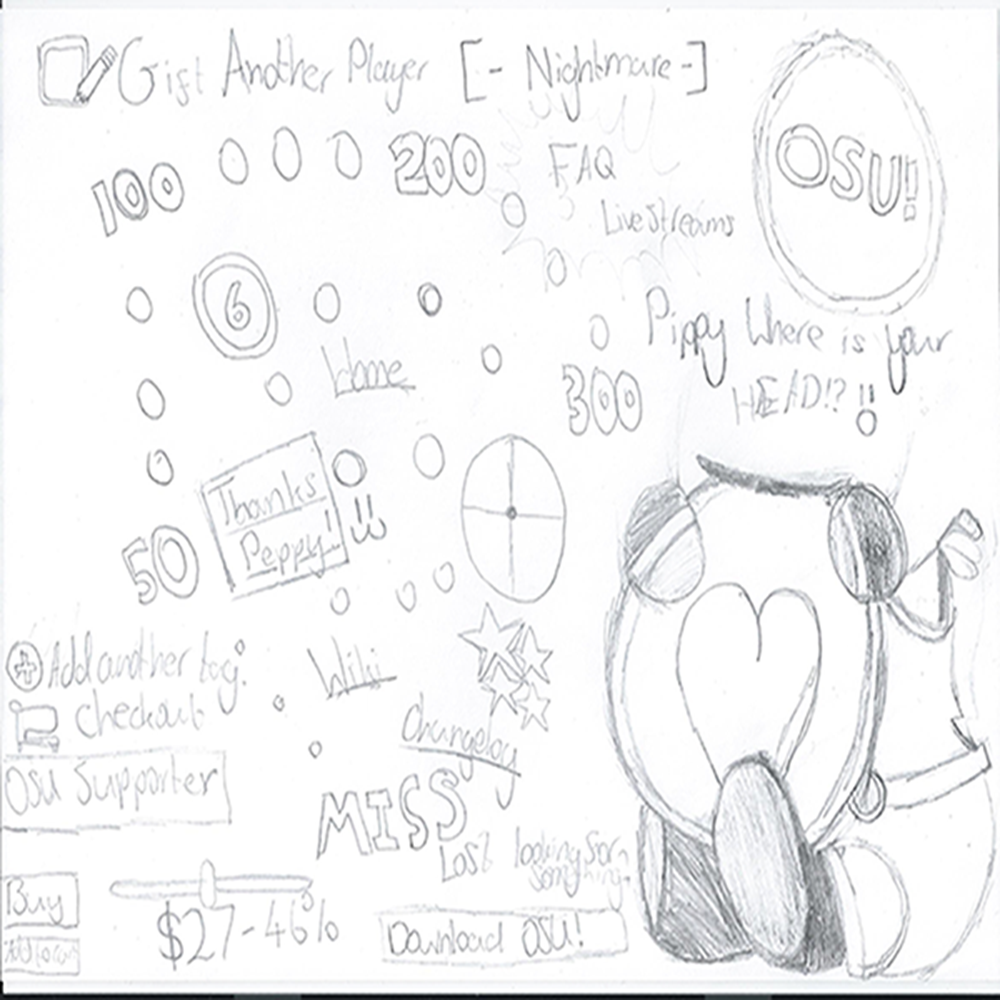 Gift Another Player [- Nightmare -]
OSU!
100
200
FAQ
Live streams
6
Pippy Where is your
HEAD!?
Home
300
Thanks
Peppy!
50
Add another tag:
checkout
Wiki
Changelog
OSU Supporter
MISS
Lost looking for
something
Buy
$27-46%
Download OSU!